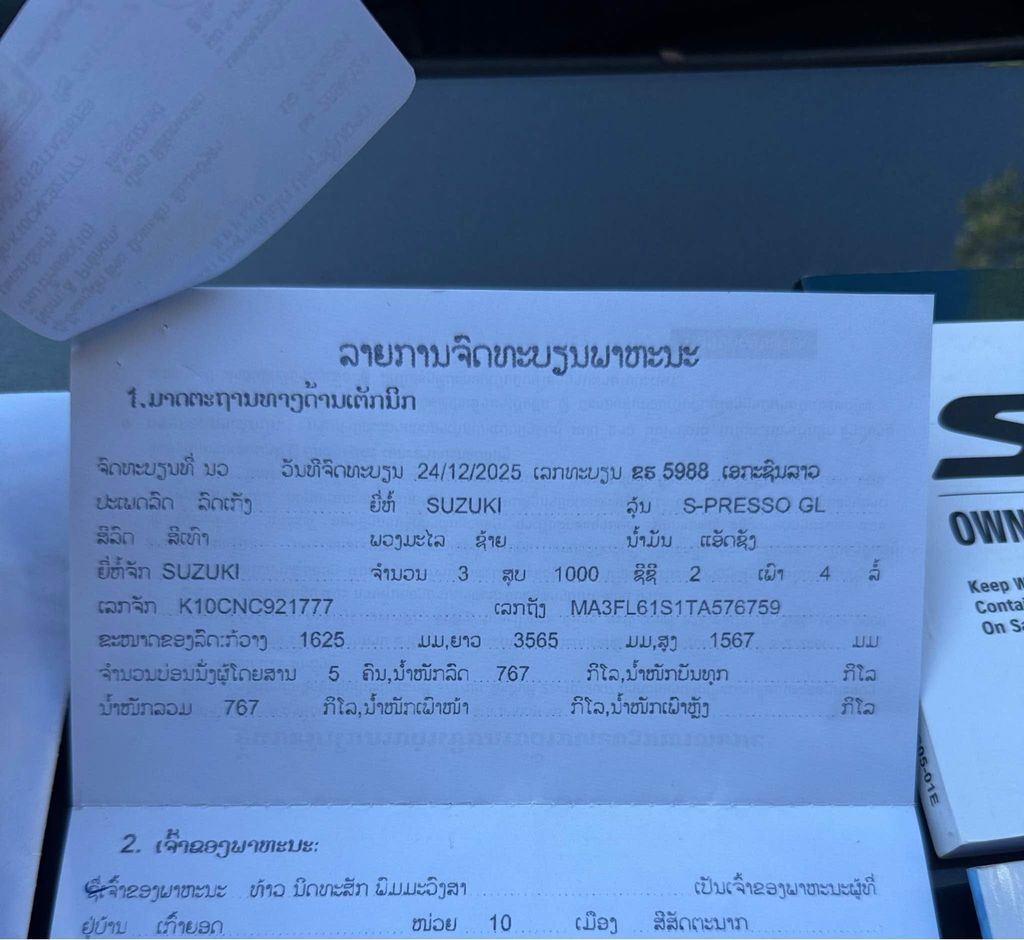 ລາຍການຈົດທະບຽນພາຫະນະ
1.ມາດຕະຖານທາງດ້ານເຕັກນິກ
ຈົດທະບຽນທີ່ ນວ ວັນທີຈົດທະບຽນ 24/12/2025 ເລກທະບຽນ ຂຮ 5988 ເອກະຊົນລາວ
ປະເພດລົດ ລົດເກັງ ຍີ່ຫໍ້ SUZUKI ລຸ້ນ S-PRESSO GL
ສີລົດ ສີເທົາ ພວງມະໄລ ຊ້າຍ ນ້ຳມັນ ແອັດຊັງ
ຍີ່ຫໍ້ຈັກ SUZUKI ຈຳນວນ 3 ສູບ 1000 ຊີຊີ 2 ເພົາ 4 ລໍ້
ເລກຈັກ K10CNC921777 ເລກຖັງ MA3FL61S1TA576759
ຂະໜາດຂອງລົດ:ກ້ວາງ 1625 ມມ,ຍາວ 3565 ມມ,ສູງ 1567 ມມ
ຈຳນວນບ່ອນນັ່ງຜູ້ໂດຍສານ 5 ຄົນ,ນ້ຳໜັກລົດ 767 ກິໂລ,ນ້ຳໜັກບັນທຸກ ກິໂລ
ນ້ຳໜັກລວມ 767 ກິໂລ,ນ້ຳໜັກເພົາໜ້າ ກິໂລ,ນ້ຳໜັກເພົາຫຼັງ ກິໂລ
2. ເຈົ້າຂອງພາຫະນະ:
ຊື່ເຈົ້າຂອງພາຫະນະ ທ້າວ ນິດທະສັກ ພິມມະວົງສາ ເປັນເຈົ້າຂອງພາຫະນະຜູ້ທີ
ຢູ່ບ້ານ ເກົ້າຍອດ ໜ່ວຍ 10 ເມືອງ ສີສັດຕະນາກ
OWN
Keep W
Conta
On Sa
05-01E